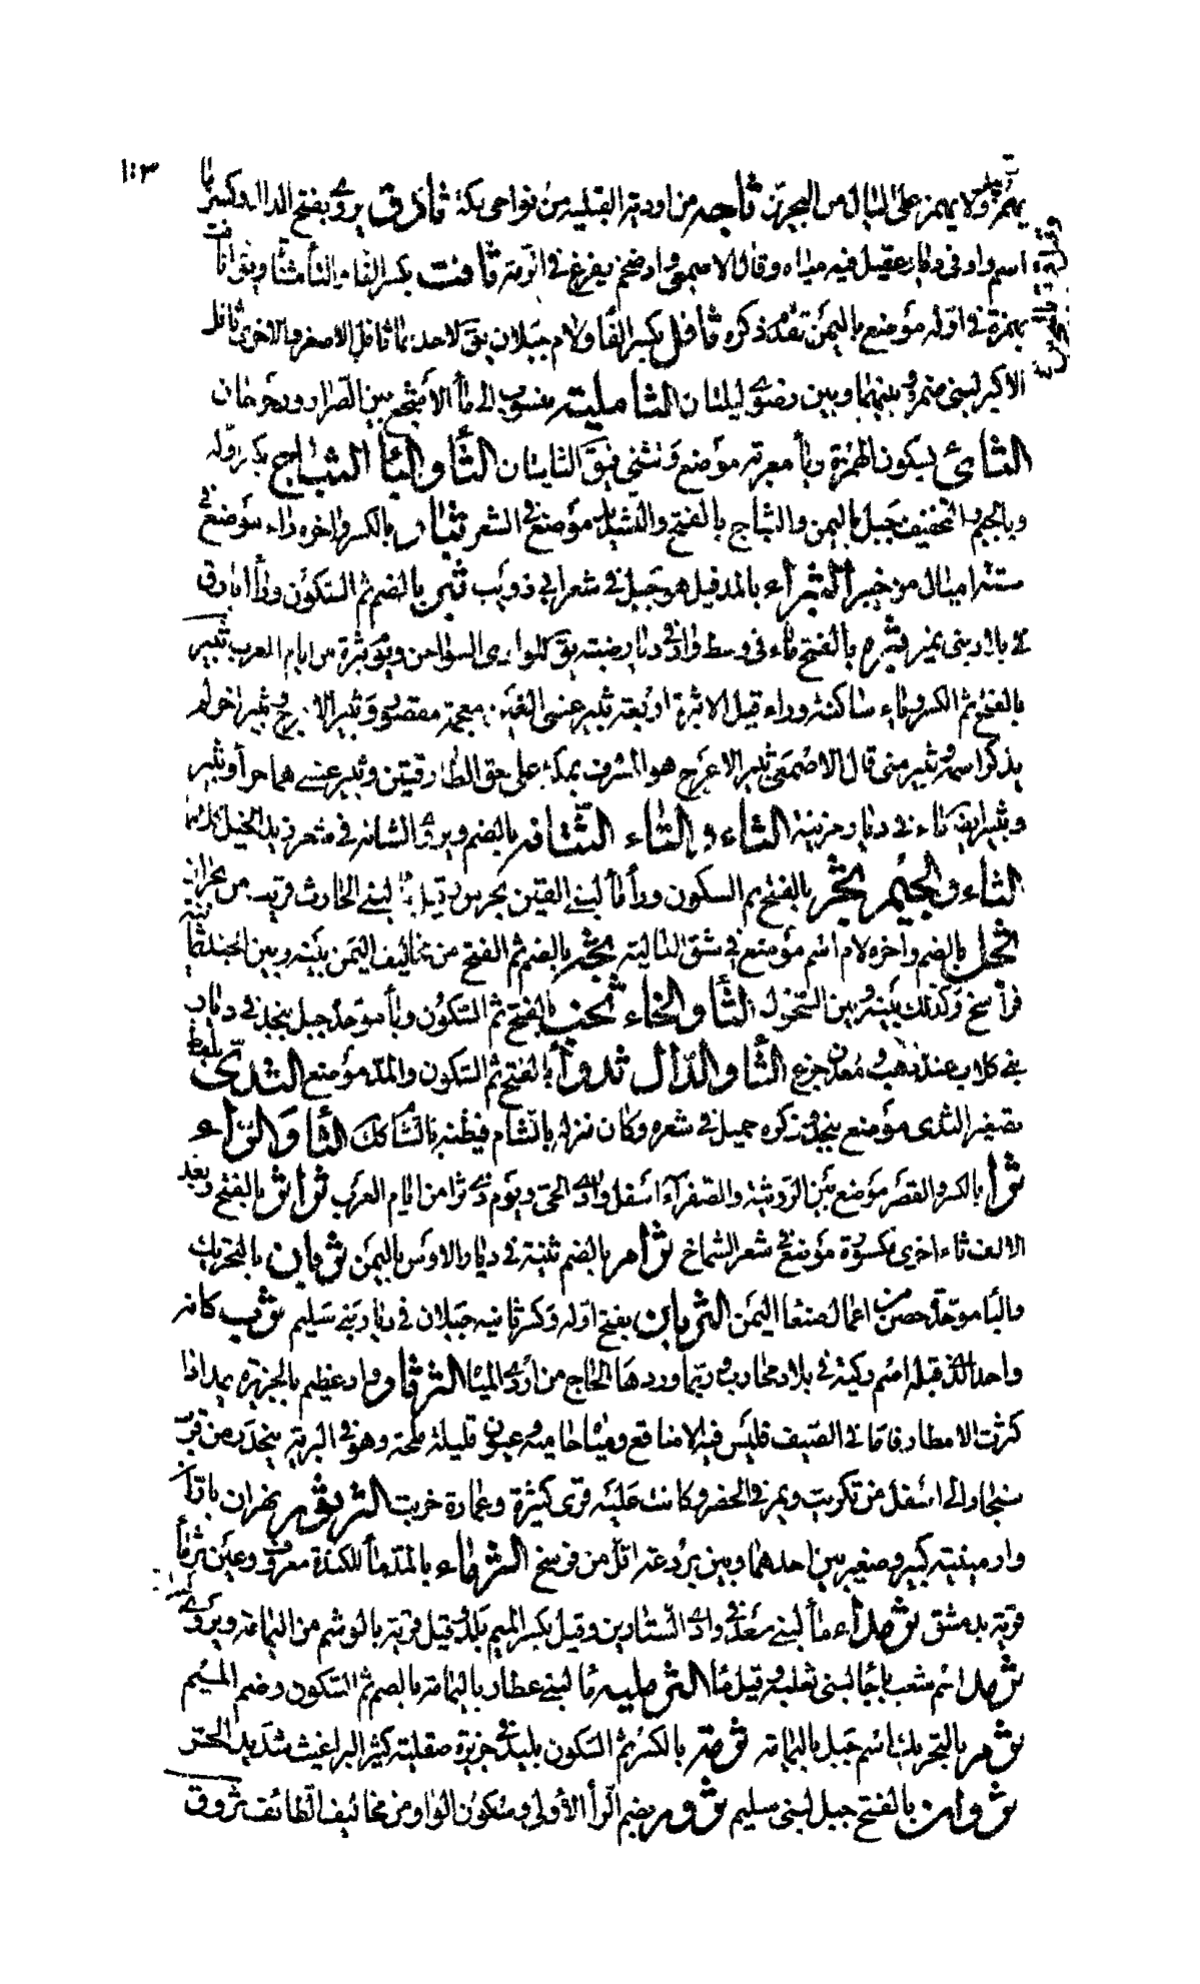 ١٠٣
يهمز ولا يهمز على الليال من البحرين ثاجه من اودية القبلية من نواحي مكة ثاذق يروى بفتح الدال وكسرها
اسم واد في ديار عقيل فيه مياه وقال الاصمعي واد ضخم يفرغ في الرمة ثافت بكسر الفاء والتاء مثناة ويق اثافت
بهمزة في اوله موضع باليمن تقدم ذكره ثافل بكسر الفا ولام جبلان يق لاحدهما ثافل الاصغر والاخرى ثافل
الاكبر لبني ضمرة بينهما وبين رضوى ليلتان الثاملية منسوب الى ماء لاشجع بين الصراد ورحرحان
الثاي بسكون الهمزة ويا معربة موضع وتثنى فيق الثايتان الثا والبا الثباج بكسر اوله
وبالجيم والتخفيف جبل باليمن والثباج بالفتح والتشديد موضع في الشعر ثبار بالكسر واخره راء موضع في
ستة اميال من خيبر الثبراء بالمد قيل هو جبل في شعر ابي ذويب ثبر بالضم ثم السكون وراء ابارق
في بلاد بني نمير ثبرة بالفتح ماء في وسط واد في ديار ضبة يق لذلك الوادي السواجن ويوم ثبرة من ايام العرب ثبير
بالفتح ثم الكسر وياء ساكنة وراء قيل الاثبرة اربعة ثبير غيني الغين معجمة مقصور وثبير الاعرج وثبير اخر لم
يذكر اسمه وثبير منى قال الاصمعي ثبير الاعرج هو المشرف بمكة على حق الطارقيين وثبير غيني هما حرا وثبير
وثبير ايضا ماء في ديار مزينة الثاء والتاء الثتانه بالضم ويروى الشانه في شعر زيد الخيل
الثاء والجيم ثجر بالفتح ثم السكون وراء ماء لبني القين بجرش وقيل ماء لبني الحارث قريب من نجران
ثجل بالضم واخره لام اسم موضع في شق العالية ثجه بالضم ثم الفتح من مخاليف اليمن بينه وبين الجند ثمانية
فراسخ وكذلك بينه وبين السحول الثا والخاء ثخب بالفتح ثم السكون وبا موحدة جبل بنجد في ديار
بني كلاب عنده ذهب ومعدن جزع الثا والدال ثدوا بالفتح ثم السكون والمد موضع الثدي بلفظ
تصغير الثدى موضع بنجد ذكره جميل في شعره وكان منزله بالشام فيظنه بالشام كك الثا والراء
ثرا بالكسر والقصر موضع بين الرويثة والصفراء اسفل وادي الجي ويوم ذي ثرا من ايام العرب ثراثر بالفتح وبعد
الالف ثاء اخرى مكسورة موضع في شعر الشماخ ثرام بالضم ثنية في ديار الاوس باليمن ثربان بالتحريك
والبا موحدة حصن من اعمال صنعا اليمن الثربان بفتح اوله وكسر ثانيه جبلان في ديار بني سليم ثرب كانه
واحد الذي قبله اسم ركية في بلاد محارب وربما وردها الحاج من اردى المياه الثرثار واد عظيم بالجزيرة يمد اذا
كثرت الامطار فاما في الصيف فليس فيه الا مناقع ومياه حامية وعيون قليلة ملحة وهو في البرية ينحدر من قرب
سنجار الى اسفل من تكريت ويمر في الحضر وكانت عليه قرى كثيرة وعمارة خربت الثرثور نهران باران
وارمينية كبير وصغير بين احدهما وبين بردعة اقل من فرسخ الثرماء بالمد ماء لكندة معروف وعين ثرماء
قرية بدمشق ثرمداء ماء لبني سعد في وادي الستارين وقيل بكسر الميم بلد وقيل قرية بالوشم من اليمامة ويروى
ثرمد اسم شعب باجا لبني ثعلبة وقيل ماء الثرمليه ماء لبني عطارد باليمامة بالضم ثم السكون وضم الميم
ثرم بالتحريك اسم جبل باليمامة ثرمة بالكسر ثم السكون بليد في جزيرة صقلية كثير البراغيث شديد الحر
ثروان بالفتح جبل لبني سليم ثرور بضم الراء الاولى وسكون الواو من مخاليف الطائف ثروق